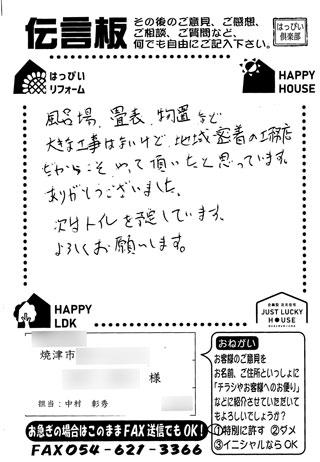 伝言板
その後のご意見、ご感想、
ご相談、ご質問など、
何でも自由にご記入下さい。
はっぴい
倶楽部
はっぴい
リフォーム
HAPPY
HOUSE
風呂場、畳表、物置など
大きな工事はないけど、地域密着の工務店
だからこそ、やって頂いたと思っています。
ありがとうございました。
次はトイレを予定しています。
よろしくお願いします。
HAPPY
LDK
JUST LUCKY
HOUSE
焼津市
様
担当：中村 彰秀
おねがい
お客様のご意見を
お名前、ご住所といっしょに
「チラシやお客様へのお便り」
などに紹介させていただいて
もよろしいでしょうか？
①特別に許す ②ダメ
③イニシャルならOK
お急ぎの場合はこのままFAX送信でもOK!
FAX 054-621-3366